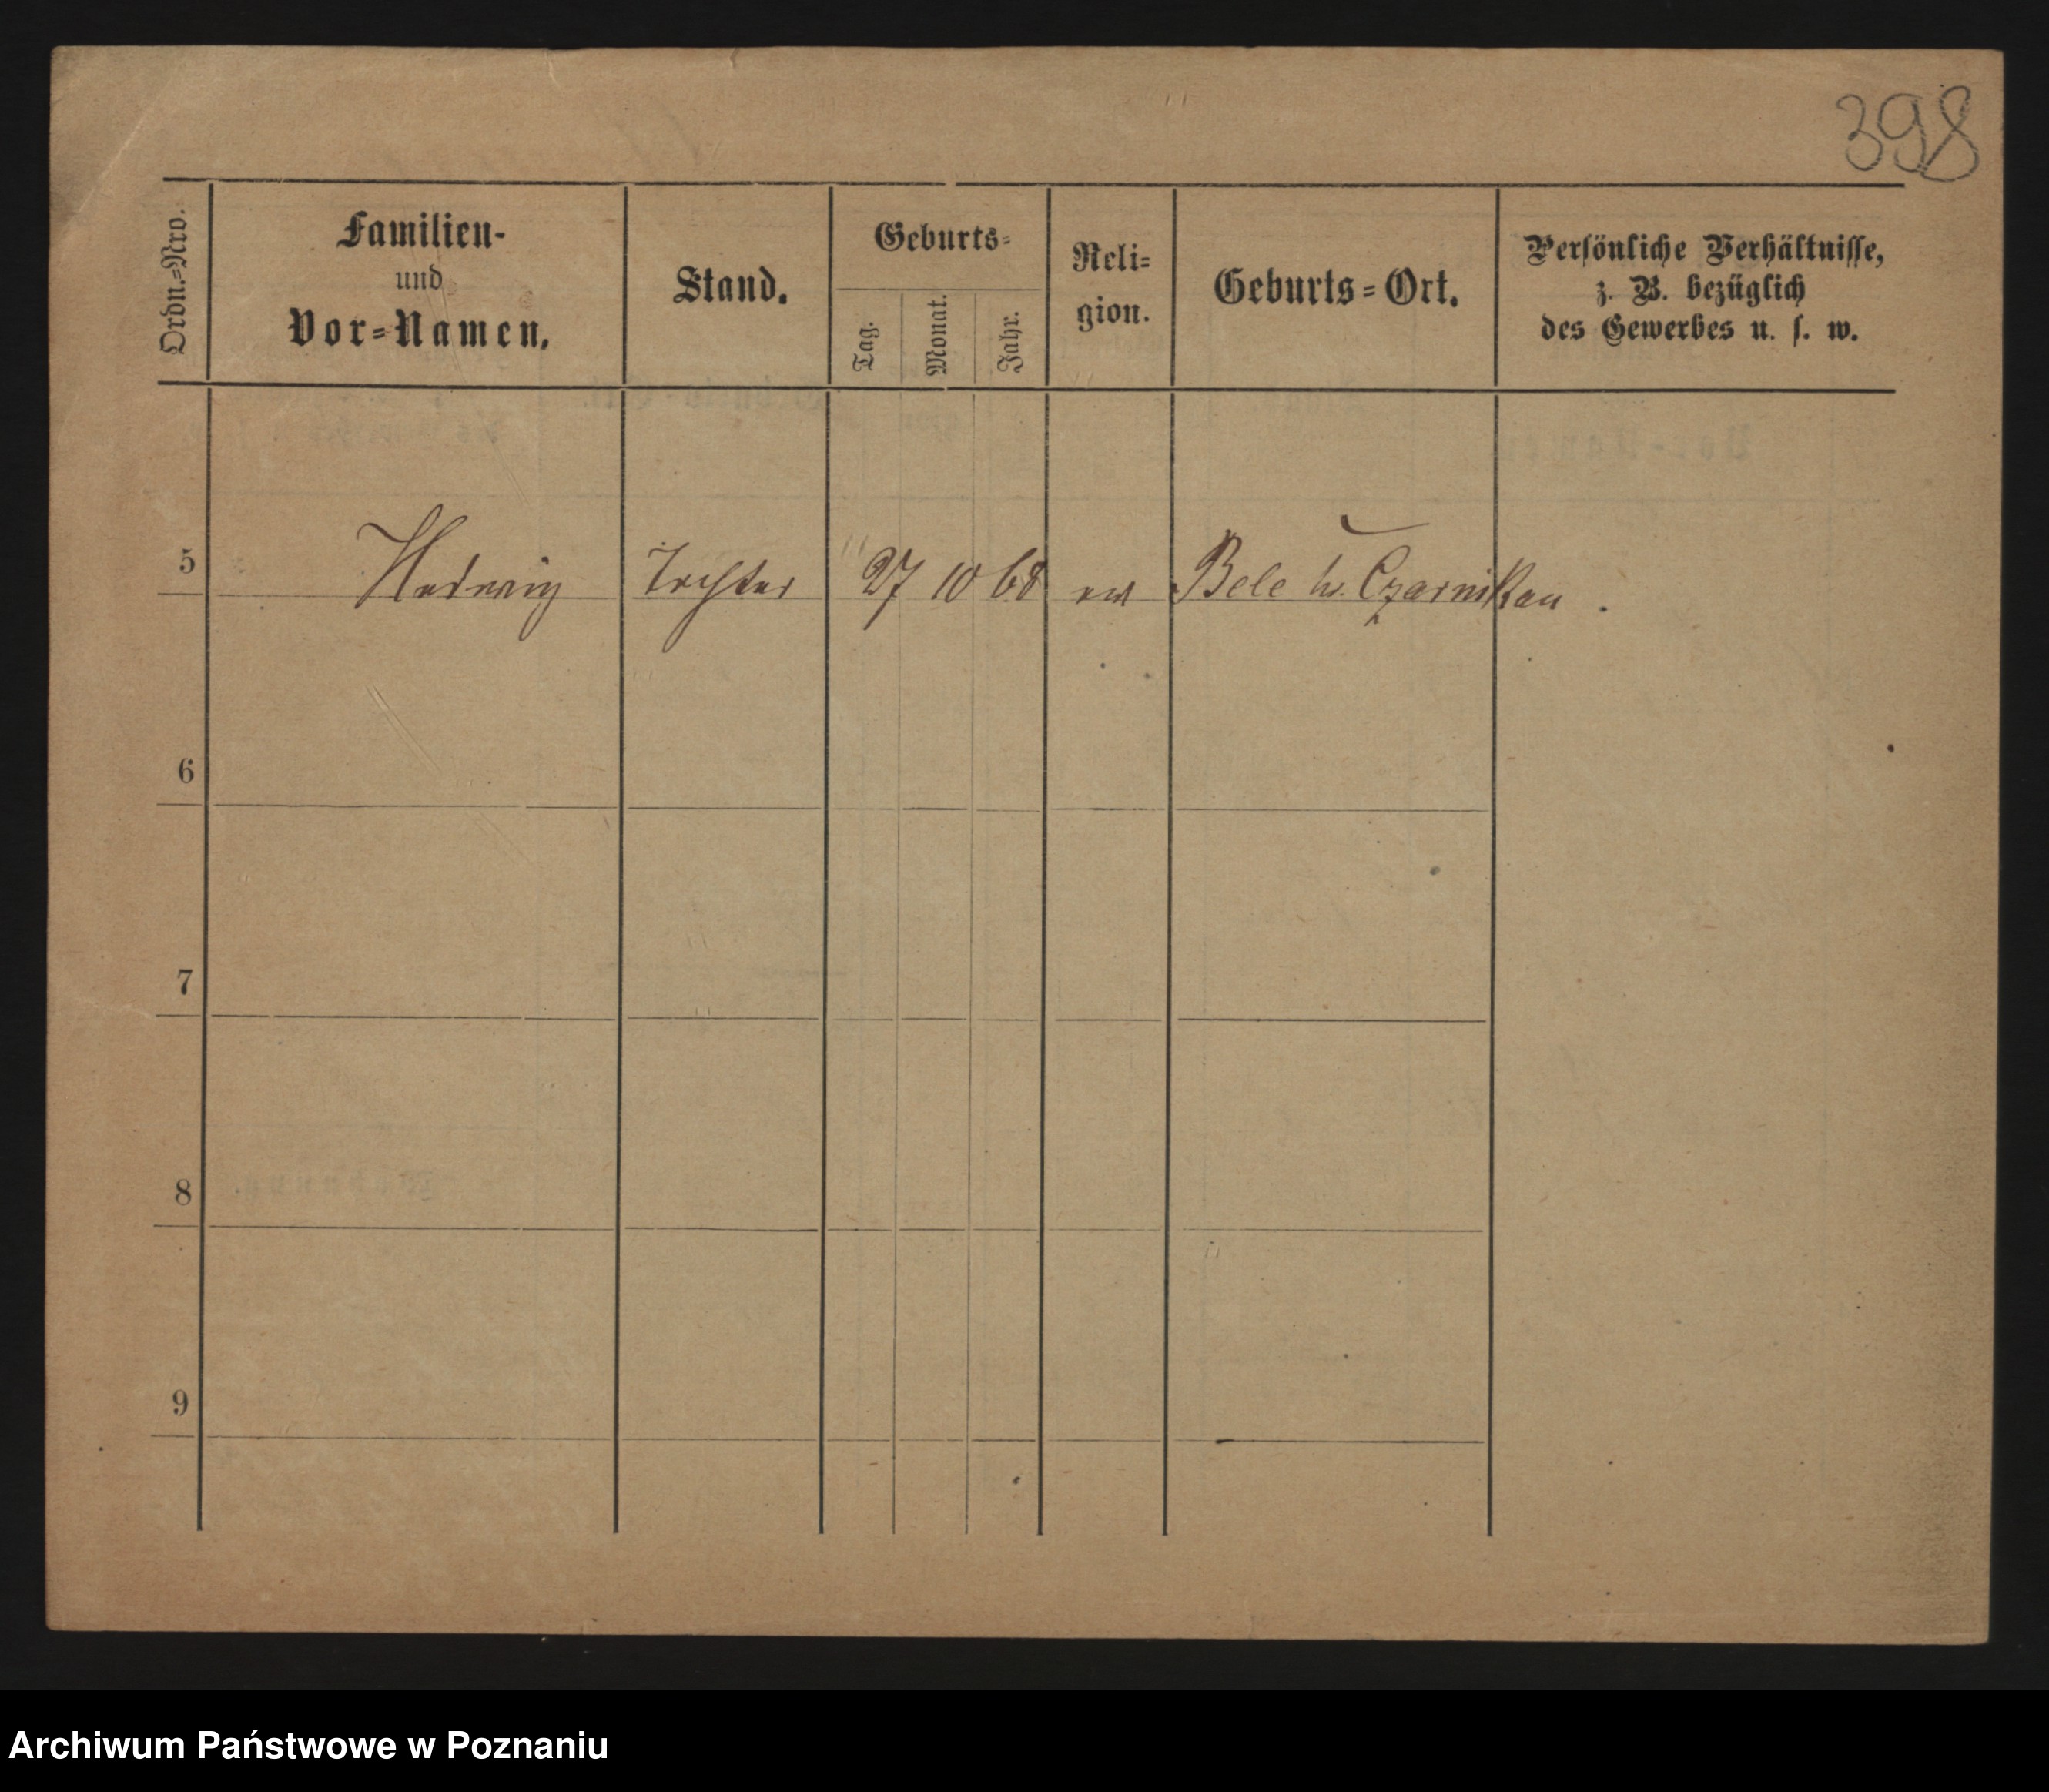 398
Ordn.=Nro.
Familien-
und
Vor=Namen.
Stand.
Geburts=
Tag.
Monat.
Jahr.
Reli=
gion.
Geburts=Ort.
Persönliche Verhältnisse,
z. B. bezüglich
des Gewerbes u. s. w.
5 Hedwig Tochter 27 10 68 ev Bele Czarnikau
6
7
8
9
Archiwum Państwowe w Poznaniu